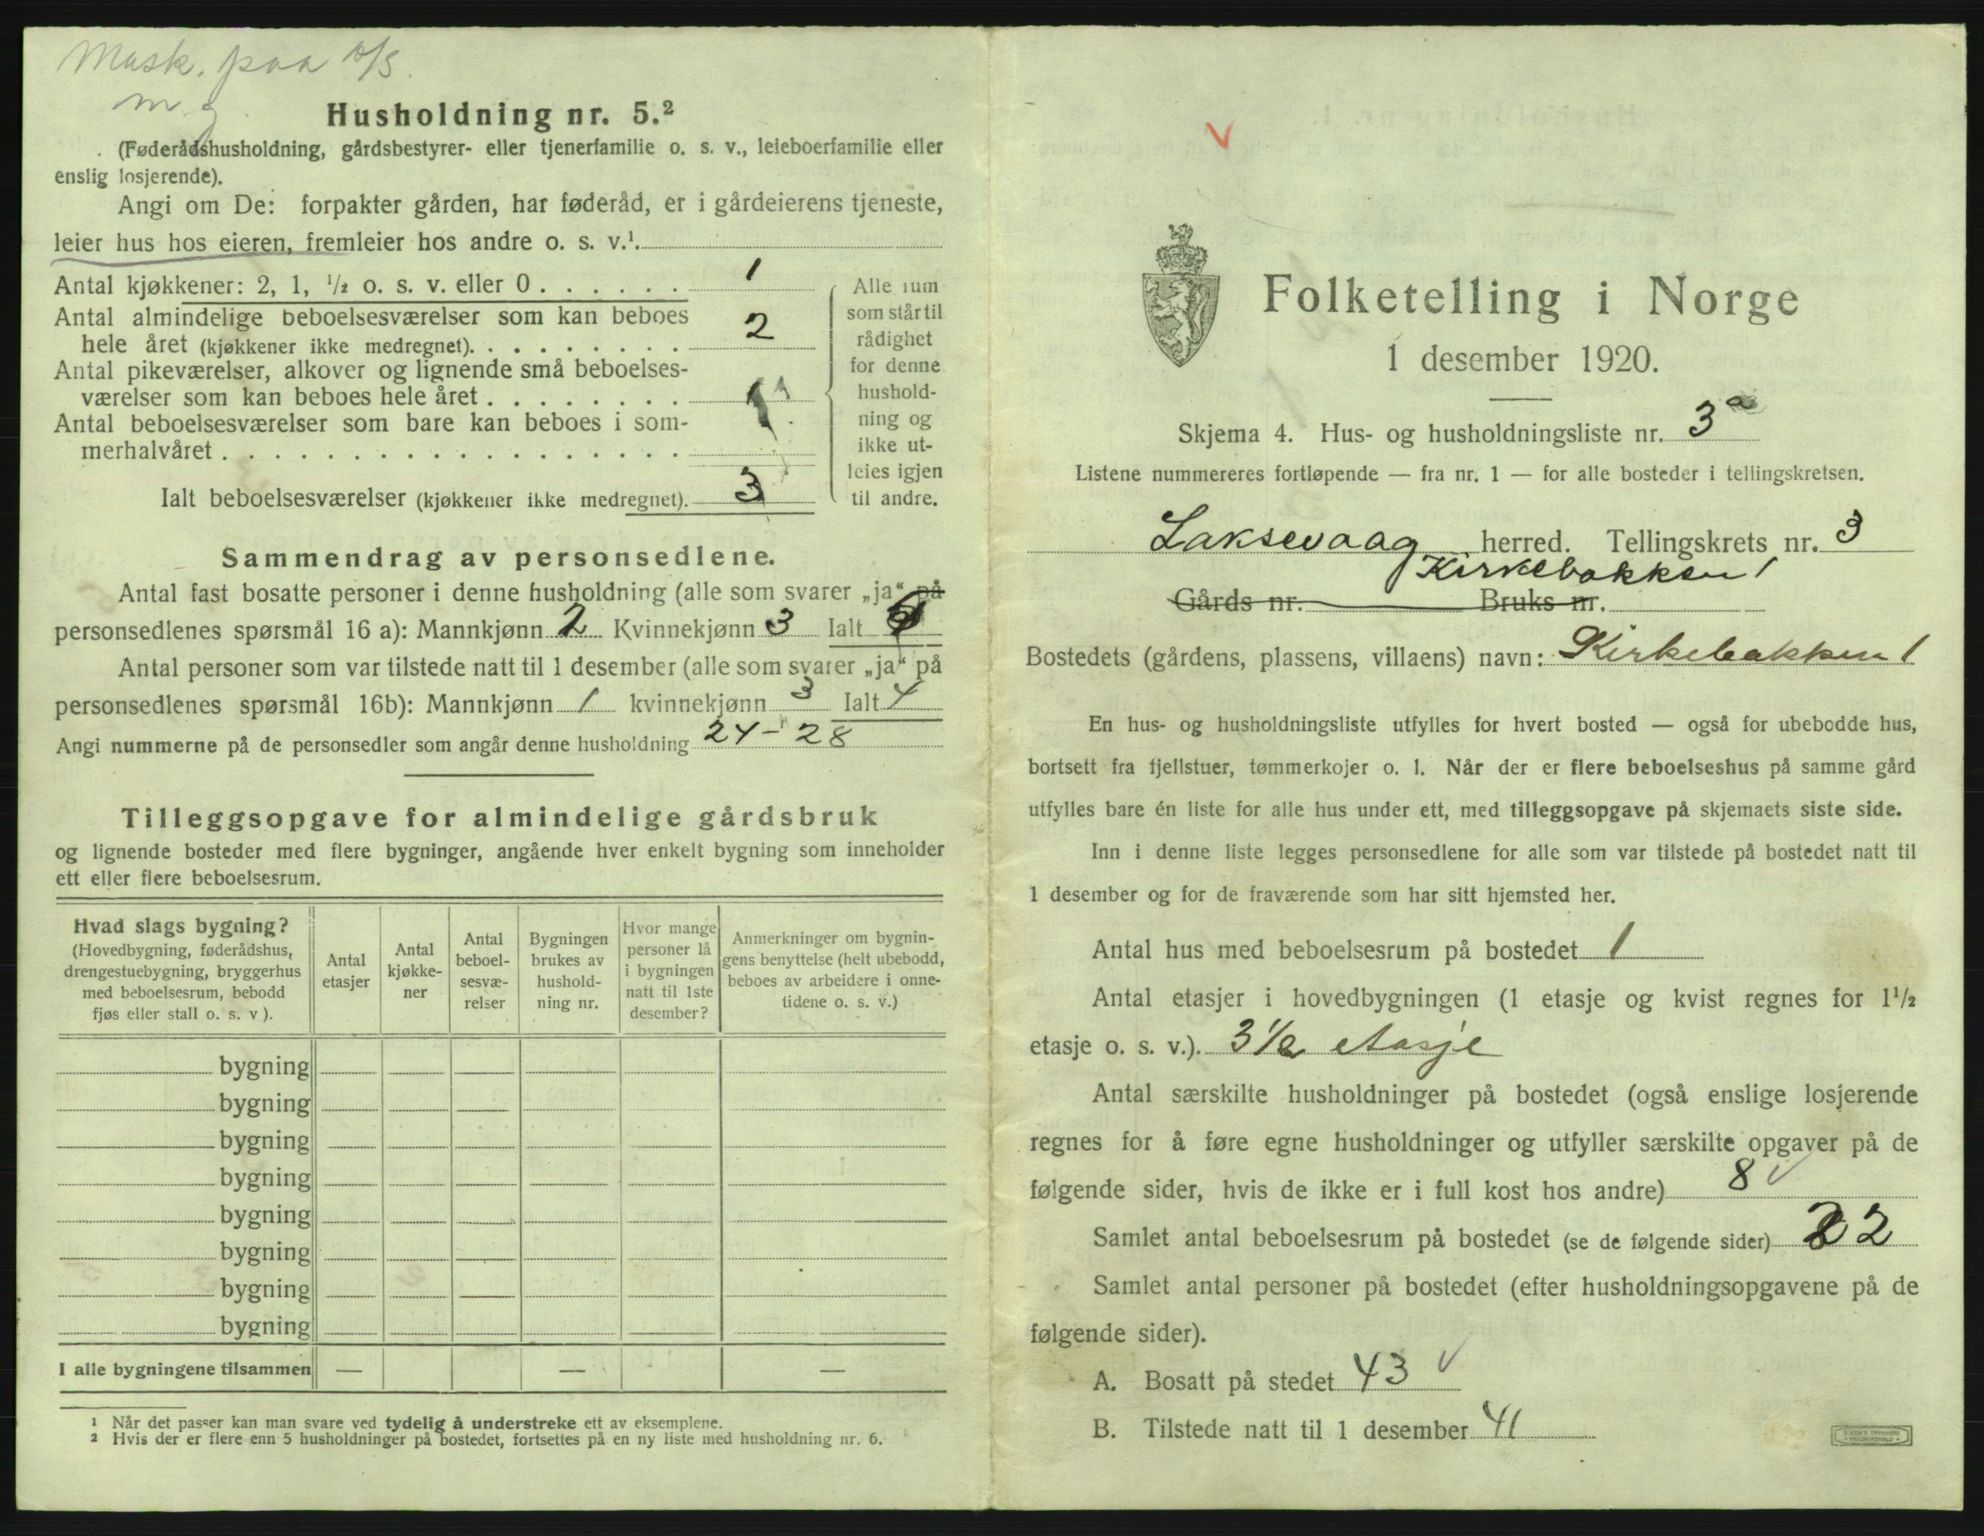 Mask. paa 10/3.
m.g.
Husholdning nr. 5.²
(Føderådshusholdning, gårdsbestyrer- eller tjenerfamilie o. s. v., leieboerfamilie eller
enslig losjerende).
Angi om De: forpakter gården, har føderåd, er i gårdeierens tjeneste,
leier hus hos eieren, fremleier hos andre o. s. v.¹.
Antal kjøkkener: 2, 1, ½ o. s. v. eller 0 . . . . . . 1
Antal almindelige beboelsesværelser som kan beboes
hele året (kjøkkener ikke medregnet). . . . . . . . . 2
Antal pikeværelser, alkover og lignende små beboelses-
værelser som kan beboes hele året . . . . . . . . 1
Antal beboelsesværelser som bare kan beboes i som-
merhalvåret . . . . . . . . . . . . . . . . . .
Ialt beboelsesværelser (kjøkkener ikke medregnet). 3
Alle rum
som står til
rådighet
for denne
hushold-
ning og
ikke ut-
leies igjen
til andre.
Sammendrag av personsedlene.
Antal fast bosatte personer i denne husholdning (alle som svarer „ja“ på
personsedlenes spørsmål 16 a): Mannkjønn 2 Kvinnekjønn 3 Ialt
Antal personer som var tilstede natt til 1 desember (alle som svarer „ja“ på
personsedlenes spørsmål 16b): Mannkjønn 1 kvinnekjønn 3 Ialt 4
Angi nummerne på de personsedler som angår denne husholdning 24-28
Tilleggsopgave for almindelige gårdsbruk
og lignende bosteder med flere bygninger, angående hver enkelt bygning som inneholder
ett eller flere beboelsesrum.
Hvad slags bygning?
(Hovedbygning, føderådshus,
drengestuebygning, bryggerhus
med beboelsesrum, bebodd
fjøs eller stall o. s. v ).
Antal
etasjer
Antal
kjøkke-
ner
Antal
beboel-
sesvæ-
relser
Bygningen
brukes av
hushold-
ning nr.
Hvor mange
personer lå
i bygningen
natt til 1ste
desember?
Anmerkninger om bygnin-
gens benyttelse (helt ubebodd,
beboes av arbeidere i onne-
tidene o. s. v.)
bygning
bygning
bygning
bygning
bygning
bygning
bygning
bygning
I alle bygningene tilsammen — — —
¹ Når det passer kan man svare ved tydelig å understreke ett av eksemplene.
² Hvis der er flere enn 5 husholdninger på bostedet, fortsettes på en ny liste med husholdning nr. 6.
V
Folketelling i Norge
1 desember 1920.
Skjema 4. Hus- og husholdningsliste nr. 3a
Listene nummereres fortløpende — fra nr. 1 — for alle bosteder i tellingskretsen.
Laksevaag herred. Tellingskrets nr. 3
Kirkebakken 1
Gårds nr. Bruks nr.
Bostedets (gårdens, plassens, villaens) navn: Kirkebakken 1
En hus- og husholdningsliste utfylles for hvert bosted — også for ubebodde hus,
bortsett fra fjellstuer, tømmerkojer o. l. Når der er flere beboelseshus på samme gård
utfylles bare én liste for alle hus under ett, med tilleggsopgave på skjemaets siste side.
Inn i denne liste legges personsedlene for alle som var tilstede på bostedet natt til
1 desember og for de fraværende som har sitt hjemsted her.
Antal hus med beboelsesrum på bostedet 1
Antal etasjer i hovedbygningen (1 etasje og kvist regnes for 1½
etasje o. s. v.). 3 1/2 etasje
Antal særskilte husholdninger på bostedet (også enslige losjerende
regnes for å føre egne husholdninger og utfyller særskilte opgaver på de
følgende sider, hvis de ikke er i full kost hos andre) 8 v
Samlet antal beboelsesrum på bostedet (se de følgende sider) 22
Samlet antal personer på bostedet (efter husholdningsopgavene på de
følgende sider).
A. Bosatt på stedet 43 v
B. Tilstede natt til 1 desember 41